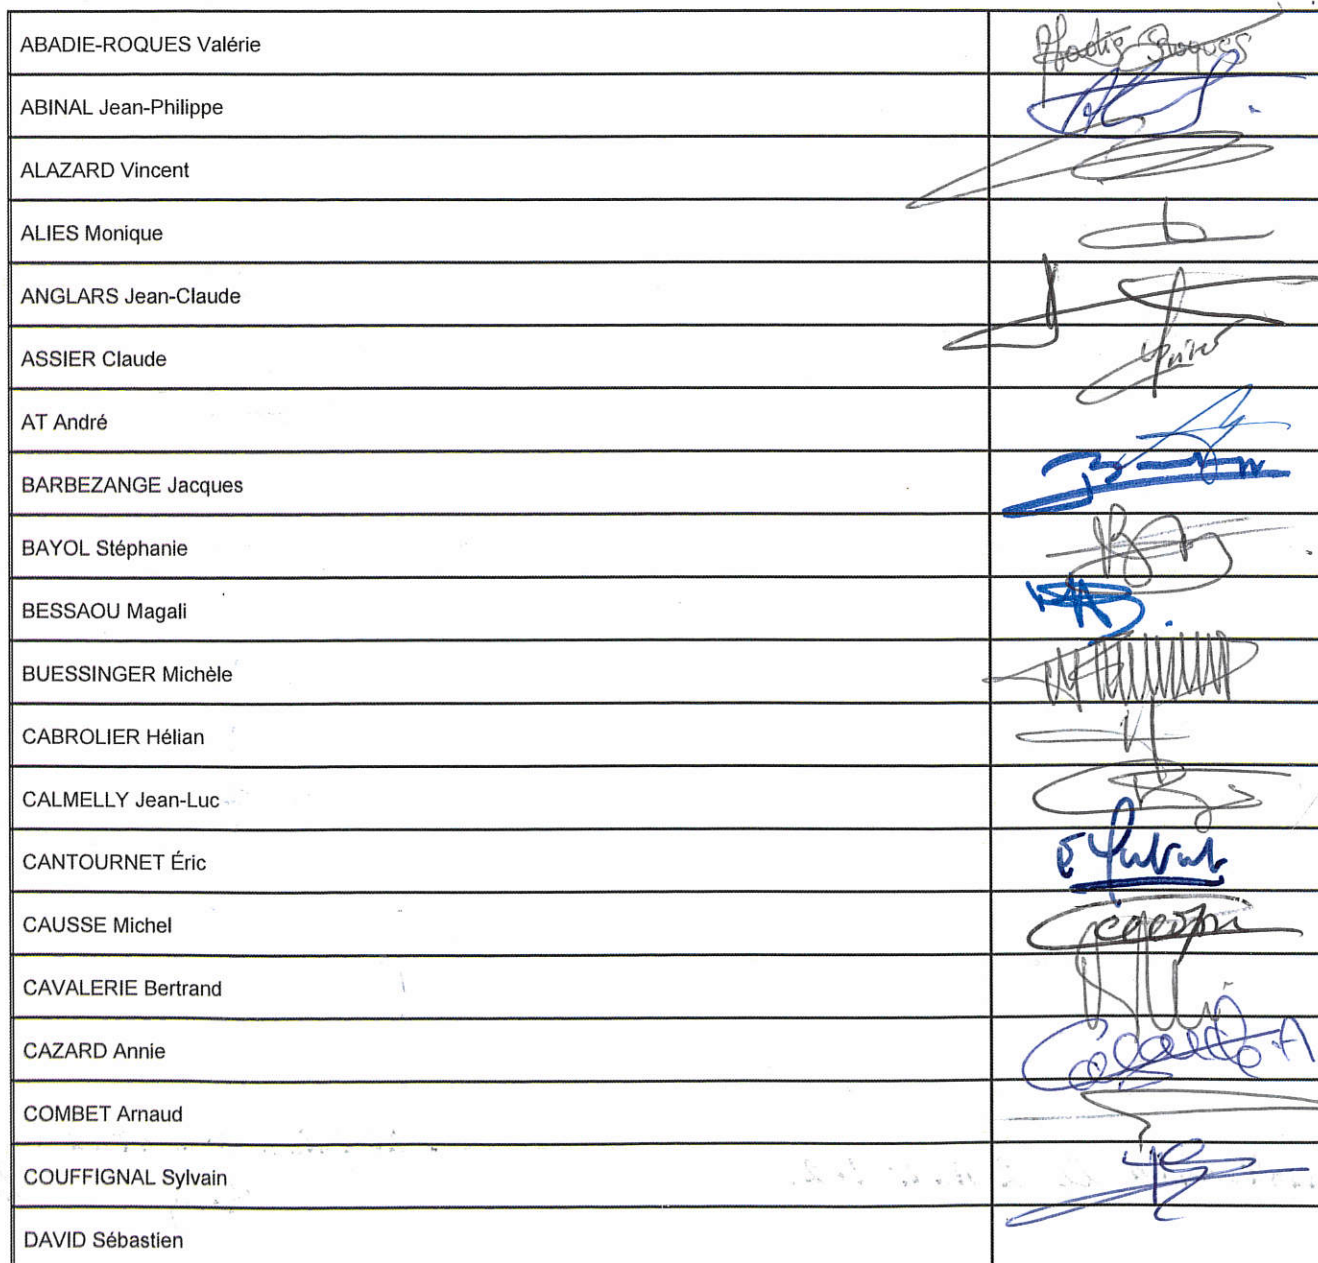 ABADIE-ROQUES Valérie
Abadie Roques
ABINAL Jean-Philippe
ALAZARD Vincent
ALIES Monique
ANGLARS Jean-Claude
ASSIER Claude
AT André
BARBEZANGE Jacques
BAYOL Stéphanie
BESSAOU Magali
BUESSINGER Michèle
CABROLIER Hélian
CALMELLY Jean-Luc
CANTOURNET Éric
CAUSSE Michel
CAVALERIE Bertrand
CAZARD Annie
COMBET Arnaud
COUFFIGNAL Sylvain
DAVID Sébastien